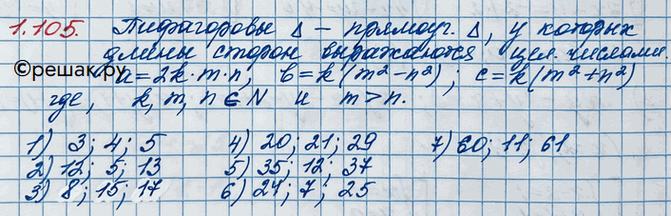 1.105. Пифагоровы Δ – прямоуг. Δ, у которых
длины сторон выражаются цел. числами.
©решак.ру
a=2k·m·n; b=k(m²-n²); c=k(m²+n²)
где, k, m, n ∈ N и m>n.
1) 3; 4; 5 4) 20; 21; 29 7) 60; 11; 61
2) 12; 5; 13 5) 35; 12; 37
3) 8; 15; 17 6) 24; 7; 25